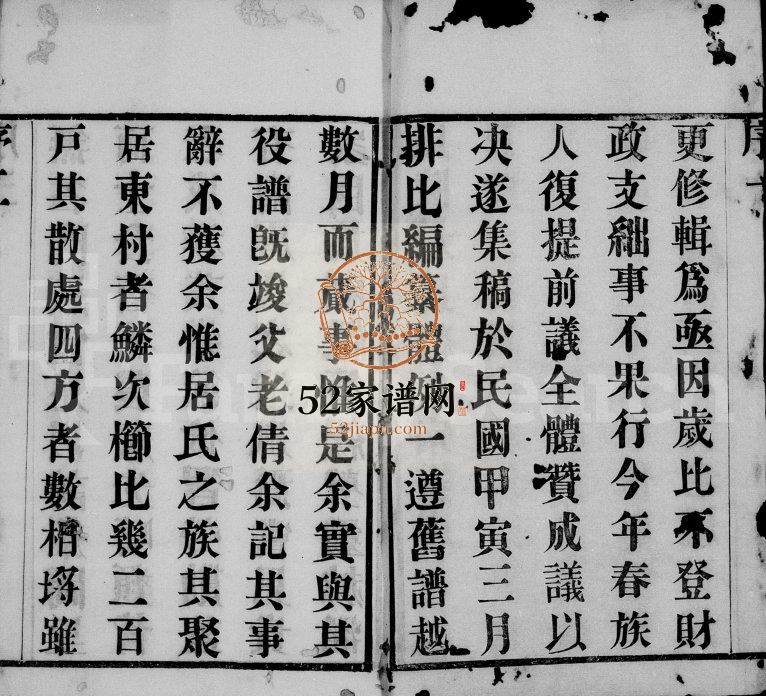 更修輯爲亟因歲比不登財
政支絀事不果行今年春族
人復提前議全體贊成議以
决遂集稿於民國甲寅三月
排比編纂體例一遵舊譜越
數月而蕆事惟是余實與其
役譜旣竣父老倩余記其事
辭不獲余惟居氏之族其聚
居東村者鱗次櫛比幾二百
戸其散處四方者數相埒雖
52家谱网
52jiapu.com